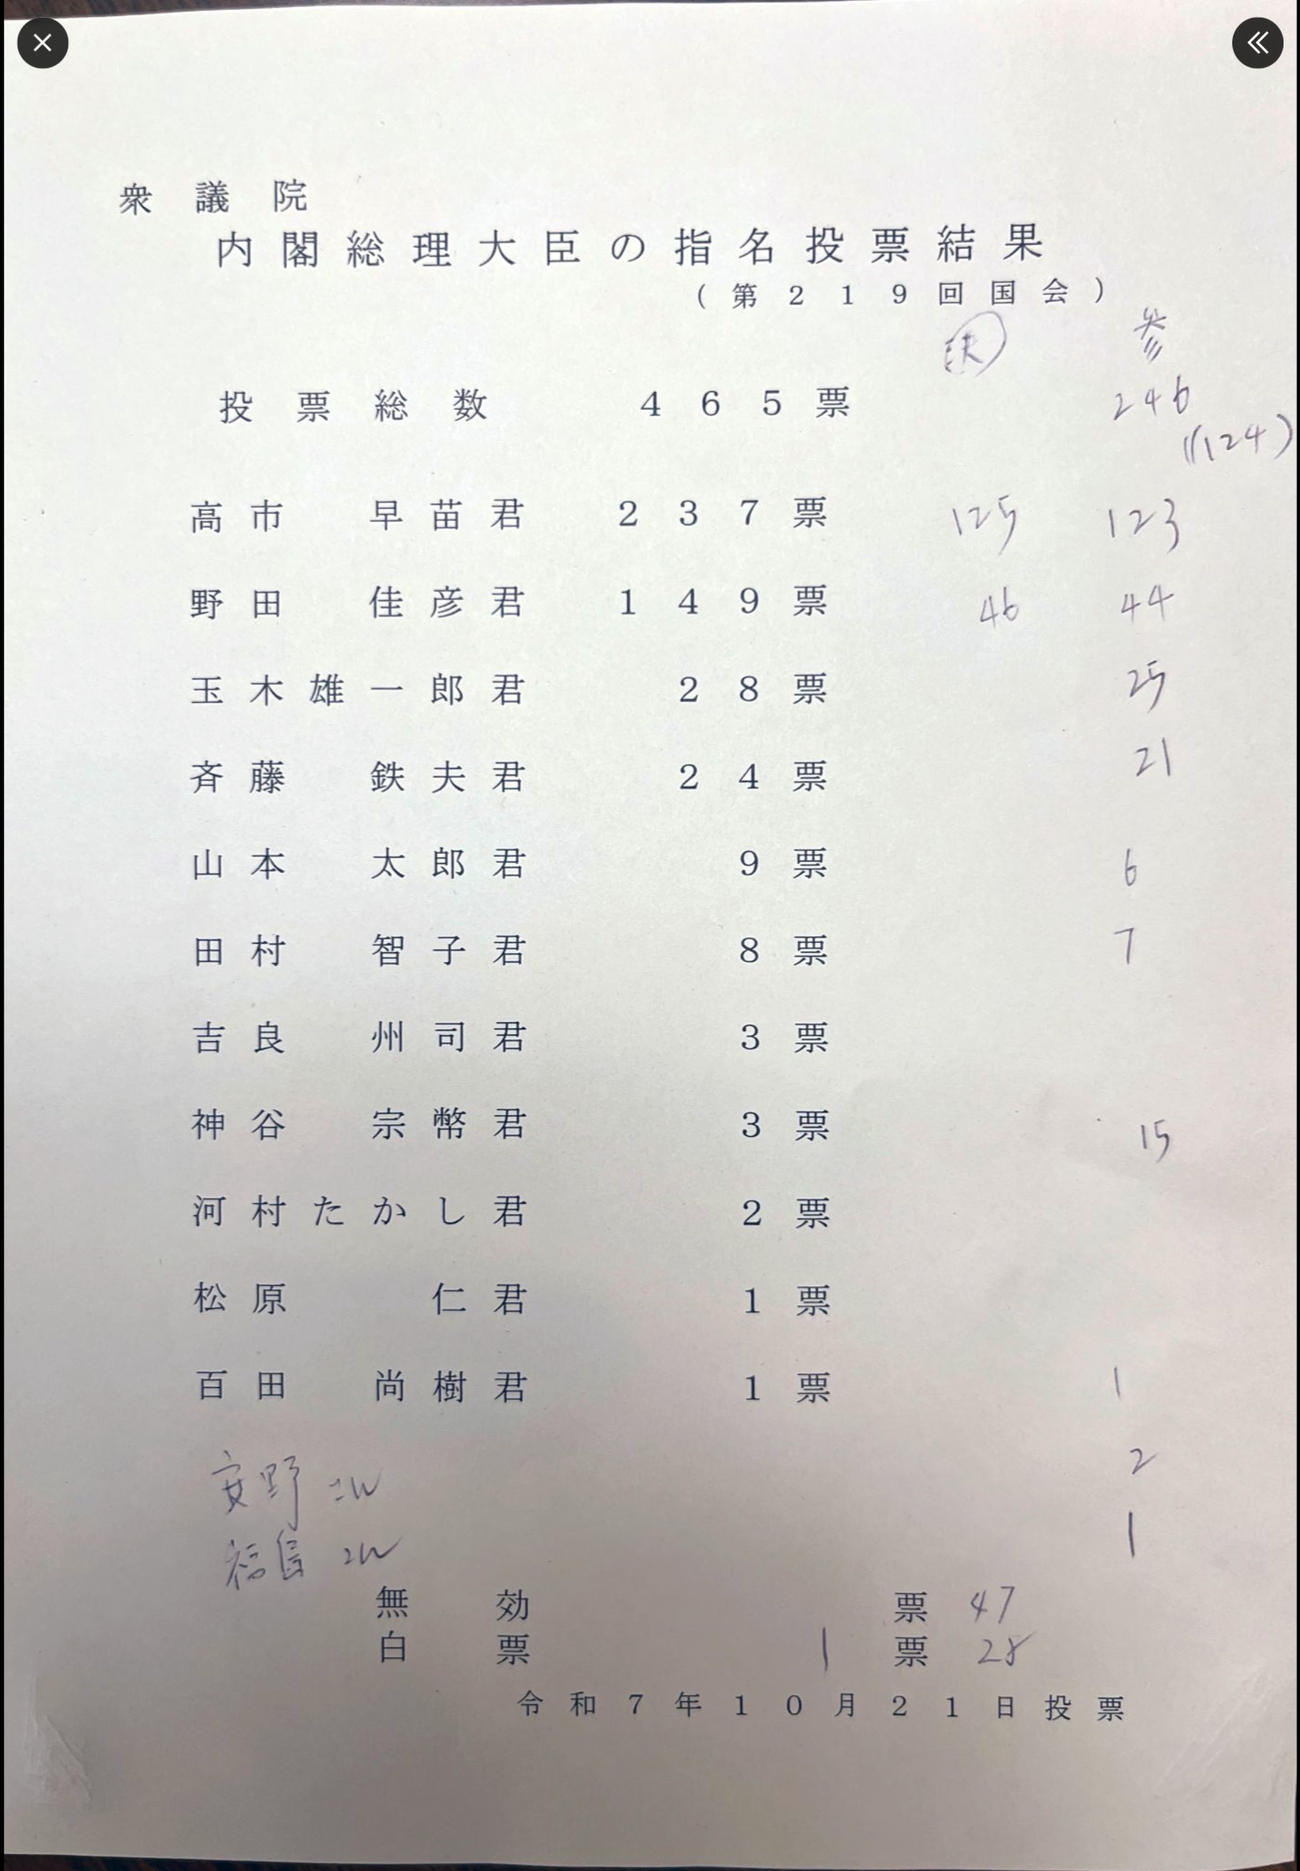 衆議院
内閣総理大臣の指名投票結果
(第219回国会)
決 参
投票総数 465票 246
(124)
高市 早苗君 237票 125 123
野田 佳彦君 149票 46 44
玉木雄一郎君 28票 25
斉藤 鉄夫君 24票 21
山本 太郎君 9票 6
田村 智子君 8票 7
吉良 州司君 3票
神谷 宗幣君 3票 15
河村たかし君 2票
松原 仁君 1票
百田 尚樹君 1票 1
安野 さん 2
福島 さん 1
無効 票 47
白票 1 票 28
令和7年10月21日投票